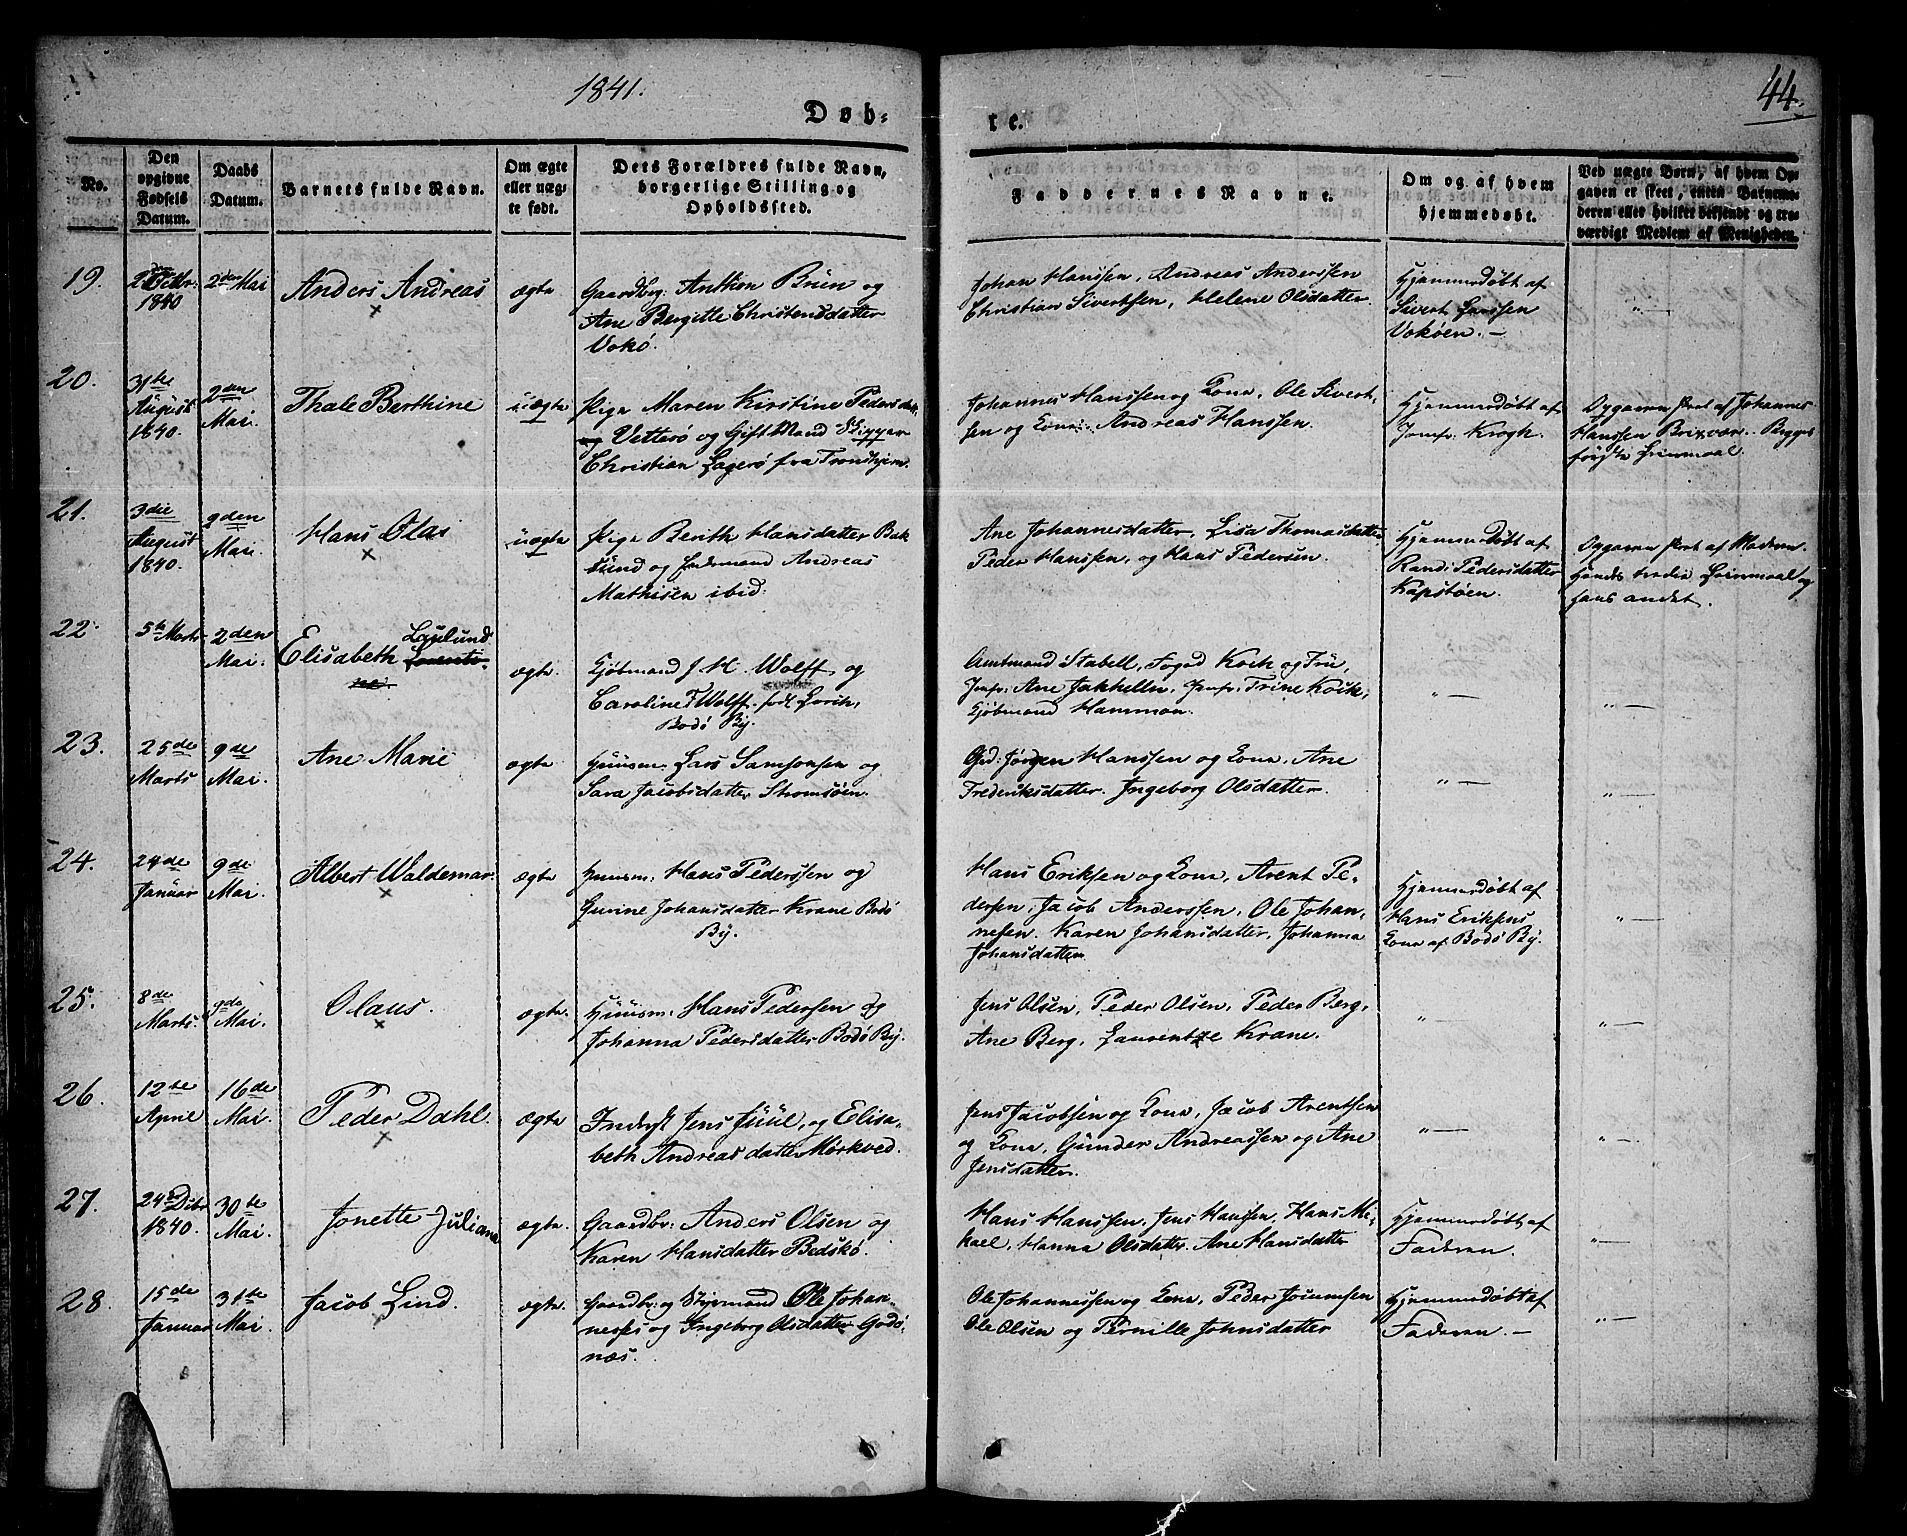 1841.
44.
Døb-
te.
No.
Den
opgivne
Fødsels
Datum.
Daabs
Datum.
Barnets fulde Navn.
Om ægte
eller uæg-
te født.
Dets Forældres fulde Navn,
borgerlige Stilling og
Opholdssted.
Faddernes Navne.
Om og af hvem
hjemmedøbt.
Ved uægte Børn, af hvem Op-
gaven er skeet, enten Barnemo-
deren eller hvilket bekjendt og tro-
værdigt Medlem af Menigheden.
19.
1840
2den Mai
Anders Andreas
ægte
Gaardbr: Anthon Brun og
Ane Bergitte Christensdatter
Vokø.
Johan Hanssen, Andreas Anderssen
Christian Sivertsen, Helene Olsdatter
Hjemmedøbt af
Sivert Larssen
Vokøen. –
" —
20.
31te
August
1840.
2den
Mai.
Thale Berthine
uægte
Pige Maren Kirstine Pedersdat.
Vetterø og Gift Mand Skipper
Christian Lagerø fra Trondhjem.
Johannes Hanssen og Kone, Ole Sivert-
sen og Kone. Andreas Hanssen.
Hjemmedøbt af
Jomfr: Krogh.
Opgaven skeet af Johannes
Hanssen Brixvær. Begges
første Leiermaal.
21.
3die
August
1840.
2den
Mai.
Hans Olai
uægte
Pige Berith Hansdatter Bak
sund og Andreas
Mathisen ibid.
Ane Johannesdatter, Lisa Thomasdatter
Peder Hanssen, og Hans Pedersen.
Hjemmedøbt af
Randi Pedersdatter
Kopstøen.
Opgaven skeet af Moderen.
Hendes tredie Leiermaal og
hans andet.
22.
5te Marts
2den
Mai.
Elisabeth Laulund
ægte
Kjøbmand J. H. Wolff og
Caroline Wolff. fød Lorch,
Bodø By.
Amtmand Stabell, Foged Koch og Frue,
Jomfr: Ane Jakhelln, Jomfr: Trine Koch,
Kjøbmand Hammon.
" —
" —
23.
25de
Marts
9de
Mai.
Ane Marie
ægte
Huusm: Lars Samsonsen og
Sara Jacobsdatter Strømsøen.
Grd: Jørgen Hanssen og Kone, Ane
Frederiksdatter. Ingeborg Olsdatter.
" —
" —
24.
24de
Januar
9de
Mai.
Albert Waldemar.
ægte
Huusm: Hans Pederssen og
Gurine Johansdatter Krane Bodø
By.
Hans Eriksen og Kone, Arent Pe-
dersen, Jacob Anderssen, Ole Johan-
nesen. Karen Johansdatter, Johanna
Johansdatter
Hjemmedøbt af
Hans Eriksens
Kone af Bodø By.
" —
25.
8de
Marts.
9de
Mai.
Olaus.
ægte.
Huusm: Hans Pedersen og
Johanna Pedersdatter Bodø By.
Jens Olsen, Peder Olsen, Peder Berg,
Ane Berg, Laurentze Krane.
" —
" —
26.
12te
April
16de
Mai.
Peder Dahl.
ægte
Inderst Jens Juul, og Elisa-
beth Andreasdatter Mørkved.
Jens Jacobsen og Kone, Jacob Arentsen
og Kone, Gunder Andreassen og Ane
Jensdatter.
" —
" —
27.
24de Dcbr
1840.
30te
Mai.
Jonette Juliana
ægte.
Gaardbr: Anders Olsen og
Karen Hansdatter Bedskø.
Hans Hanssen, Jens Hanssen, Hans Mi-
kael, Hanna Olsdatter. Ane Hansdatter
Hjemmedøbt af
Faderen.
" —
28.
15de
Januar
31te
Mai.
Jacob Lind.
ægte.
Gaardbr: og Styrmand Ole Johan-
nesses og Ingeborg Olsdatter Godø-
næs.
Ole Johannessen og Kone, Peder Joramsen
Ole Olsen og Pernille Johnsdatter
Hjemmedøbt af
Faderen. –
" —